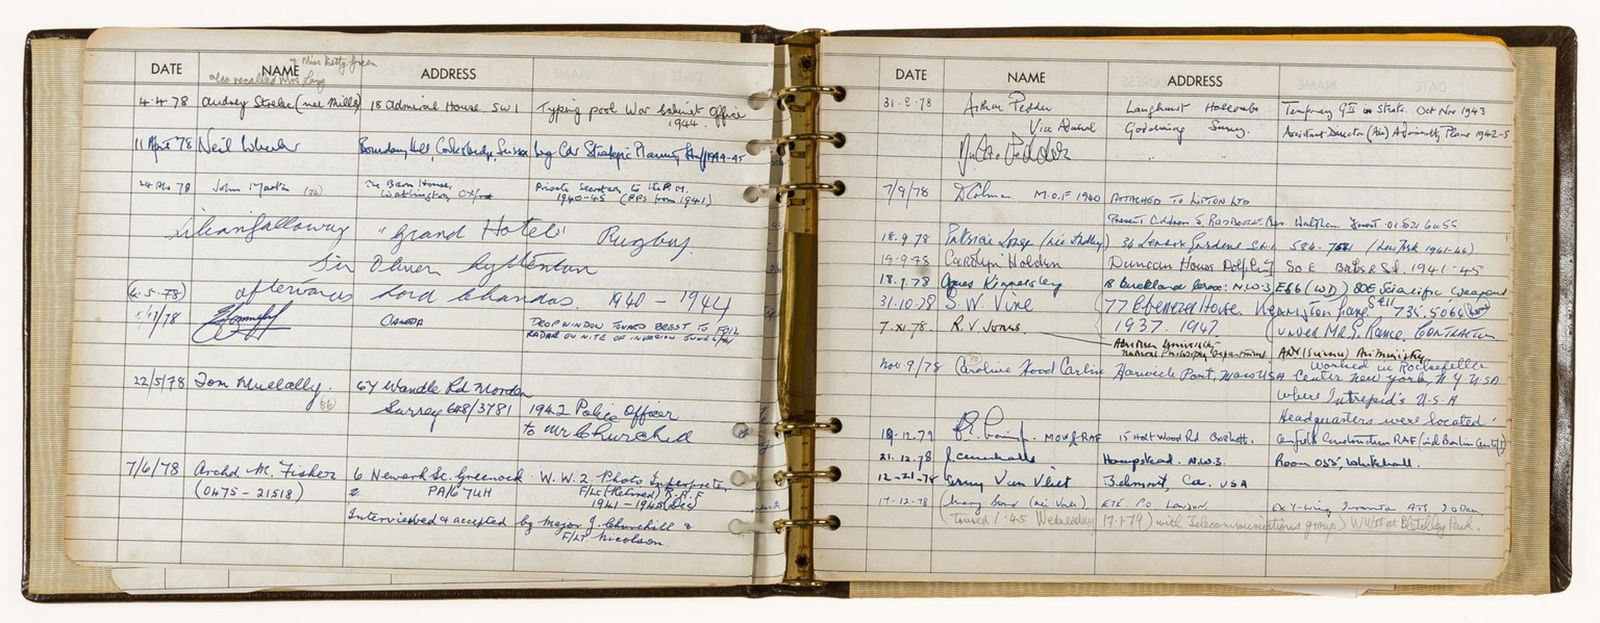 DATE NAME ADDRESS
also recalled Mrs Long Miss Betty Green
4.4.78 Audrey (nee Mills) 18 Admiral House SW1 Typing pool War Cabinet Office
1944.
11 April 78 Neil Wheeler Boundary Hall, Cooksbridge, Sussex Wg Cdr Strategic Planning Staff 1944-45
78 John Martin (74) The Barn House, Private Secretary to the P.M.
Watlington, Oxford 1940-45 (PPS from 1941)
Lilian Galloway "Grand Hotel" Rugby.
Sir Oliver Lyttelton
(4.5.78) afterwards Lord Chandos. 1940 - 1944
/78 CANADA DROP WINDOW TOWARD BREST TO FOIL
RADAR ON NITE OF INVASION JUNE 6/44
22/5/78 Tom Mullally. 64 Wandle Rd Morden
(66) Surrey 648/3781 1942 Police Officer
to Mr Churchill
7/6/78 Archd M. Fisher 6 Newark St. Greenock W.W.2 Photo Interpreter
(0475 - 21518) PA16 7UH F/Lt (Retired) R.A.F
1941 - 1945
Interviewed & accepted by Major J. Churchill &
F/Lt. Nicolson.
DATE NAME ADDRESS
31.8.78 Arthur Pedder Langhurst Hascombe Temporary in Oct Nov 1943
Vice Admiral Godalming Surrey. Assistant Director (Air) Admiralty Plans 1942-5
" "
7/9/78 D Colman M.O.F 1940 ATTACHED TO LIPTON LTD
Present Waltham 01.521 6055
18.9.78 Patricia Lorge (née) 34 Lennox Gardens S.W.1 584. (New York 1941-46)
19-9-78 Carolyn Holden Duncan House Dolphin Sq SOE Baker St. 1941-45
18.9.78 Agnes Kinnersley 18 Buckland Cres: N.W.3 (WD) SOE Scientific Weapons
31.10.78 S.W. Vine 77 Ebenezer House. Kennington Lane SE11 735.5066
7.xi.78. R.V. Jones. 1937. 1947 under Mr. G. Rance. Contractor
Aberdeen University
Natural Philosophy Department ADI (Science) Air Ministry
Nov 9/78 Caroline Hood Carlin Harwich Port, Mass USA worked in Rockefeller
Center New York, N.Y. USA
where Intrepid's U.S.A
Headquarters were located.
19.12.79 MOW & RAF 15 Holtwood Rd Oxshott. Airfield Construction RAF
21.12.78 J. Hampstead. N.W.3. Room 055, Whitehall.
12-21-78 Van Vleet Belmont, Ca. USA
17-12-78 (née Vale) P.O. London. Ex Y-wing ATS,
(Toured 1.45 Wednesday 17.1.79) with Telecommunications group) WWII at Bletchley Park.